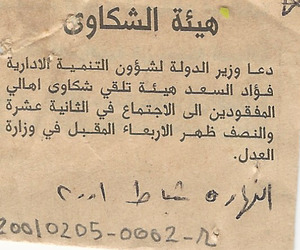 هيئة الشكاوى
دعا وزير الدولة لشؤون التنمية الادارية
فؤاد السعد هيئة تلقي شكاوى اهالي
المفقودين الى الاجتماع في الثانية عشرة
والنصف ظهر الاربعاء المقبل في وزارة
العدل.
النهار ٥ شباط ٢٠٠١
20010205-0002-N